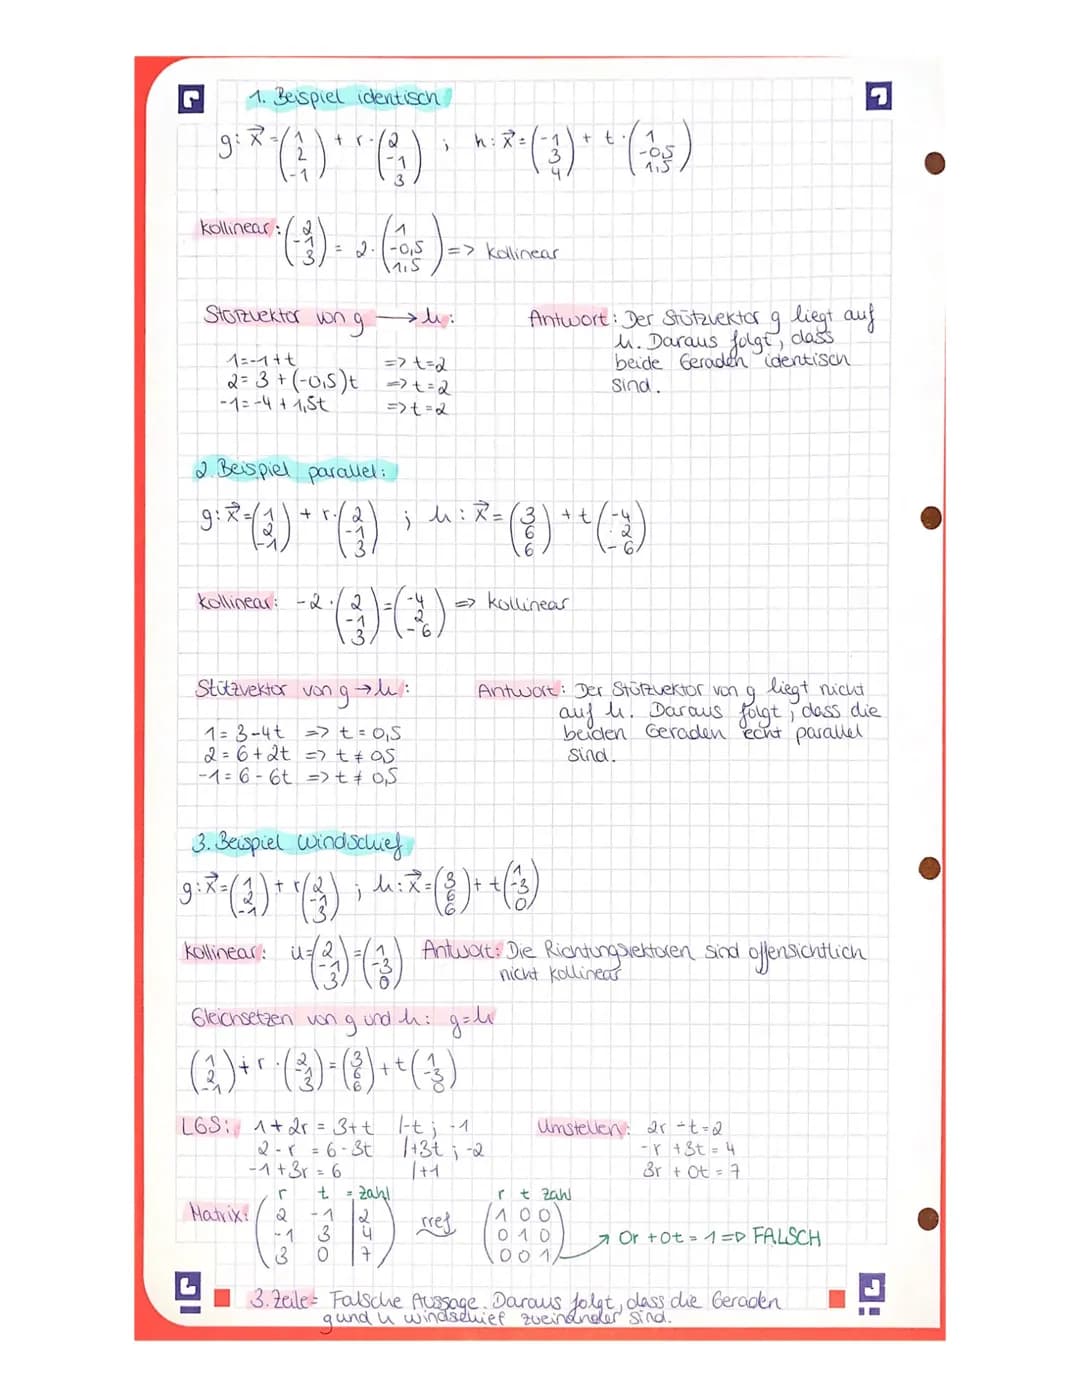 1. Beispiel identisch
g: x⃗ = (1 2 -1) + r · (2 -1 3) ; h: x⃗ = (-1 3 4) + t · (1 -0,5 1,5)
kollinear: (2 -1 3) = 2 · (1 -0,5 1,5) => kollinear
Stützvektor von g → h:
1 = -1 + t => t = 2
2 = 3 + (-0,5)t => t = 2
-1 = -4 + 1,5t => t = 2
Antwort: Der Stützvektor g liegt auf
h. Daraus folgt, dass
beide Geraden identisch
sind.
2. Beispiel parallel:
g: x⃗ = (1 2 -1) + r · (2 -1 3) ; h: x⃗ = (3 6 6) + t (-4 2 -6)
kollinear: -2 · (2 -1 3) = (-4 2 -6) => kollinear
Stützvektor von g → h:
1 = 3 - 4t => t = 0,5
2 = 6 + 2t => t ≠ 0,5
-1 = 6 - 6t => t ≠ 0,5
Antwort: Der Stützvektor von g liegt nicht
auf h. Daraus folgt, dass die
beiden Geraden echt parallel
sind.
3. Beispiel windschief
g: x⃗ = (1 2 -1) + r (2 -1 3) ; h: x⃗ = (3 6 6) + t (1 -3 0)
kollinear: u = (2 -1 3) = (1 -3 0) Antwort: Die Richtungsvektoren sind offensichtlich
nicht kollinear
Gleichsetzen von g und h: g = h
(1 2 -1) + r · (2 -1 3) = (3 6 6) + t (1 -3 0)
LGS: 1 + 2r = 3 + t |-t ; -1
2 - r = 6 - 3t |+3t ; -2
-1 + 3r = 6 |+1
Umstellen: 2r - t = 2
-r + 3t = 4
3r + 0t = 7
r t = Zahl
Matrix: (2 -1 | 2
-1 3 | 4
3 0 | 7) rref
r t Zahl
(1 0 0
0 1 0
0 0 1) → 0r + 0t = 1 => FALSCH
3. Zeile = Falsche Aussage. Daraus folgt, dass die Geraden
g und h windschief zueinander sind.